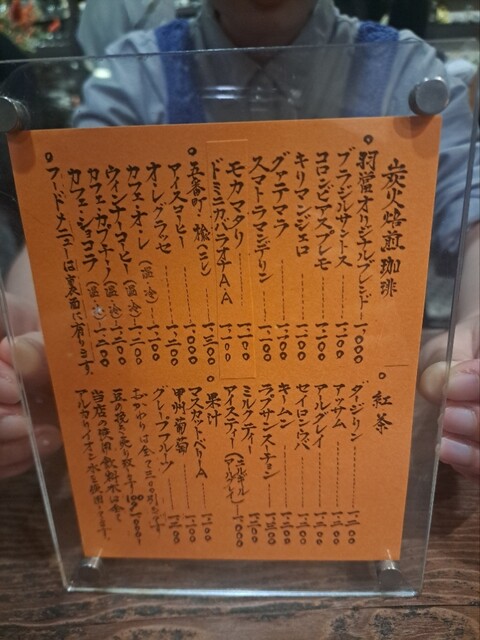 炭火焙煎珈琲
羽當オリジナルブレンド 1.000
ブラジルサントス 1.100
コロンビアスプレモ 1.100
キリマンジェロ 1.100
グァテマラ 1.100
スマトラマンデリン 1.100
モカマタリ 1.100
ドミニカバラオナAA 1.100
五番町・桧 1.300
アイスコーヒー 1.000
オ・レグラッセ 1.200
カフェ・オ・レ (温・冷) 1.100
ウィンナーコーヒー (温・冷) 1.200
カフェ・カプチーノ (温・冷) 1.200
カフェ・ショコラ (温・冷) 1.200
フードメニューは裏面に有ります。
紅茶
ダージリン
アッサム
アールグレイ
セイロンウバ
キームン
ラプサンスーチョン
ミルクティー
アイスティー 1.000
果汁
マスカットベリーA
甲州葡萄
グレープフルーツ
おかわりは全て
豆の挽き売り致します 100g
当店の使用飲料水は全て
アルカリイオン水を使用してます。